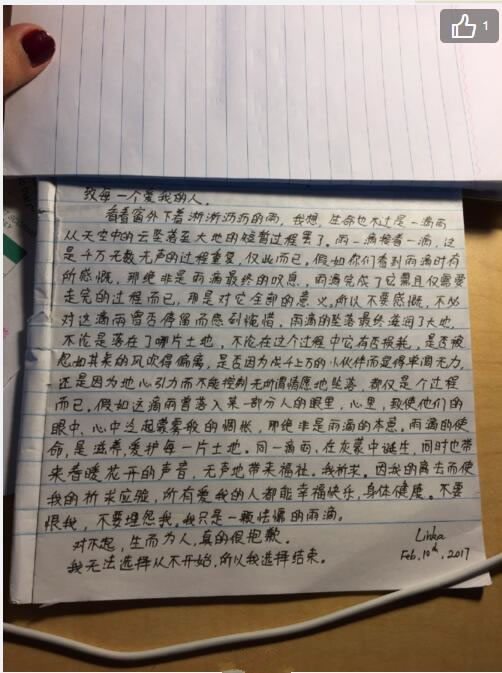 1
致每一个爱我的人，
看着窗外下着淅淅沥沥的雨，我想，生命也不过是一滴雨
从天空中的云坠落至大地的短暂过程罢了。雨一滴接着一滴，这
是千万无数无声的过程重复，仅此而已，假如你们看到雨滴时有
所感慨，那绝非是雨滴最终的叹息，雨滴完成了它需且仅需要
走完的过程而已，那是对它全部的意义。所以不要感慨，不必
对这滴雨曾否停留而感到惋惜，雨滴的坠落最终滋润了大地，
不论是落在了哪片土地，不论在这个过程中它有否损耗，是否被
忽如其来的风吹得偏离，是否因为成千上万的小伙伴而显得单调无力，
还是因为地心引力而不能控制无所谓情愿地坠落，都仅是个过程
而已，假如这滴雨曾落入某一部分人的眼里，心里，致使他们的
眼中、心中泛起蒙蒙般的惆怅，那绝非是雨滴的本意。雨滴的使
命，是滋养，爱护每一片土地。同一滴雨，在灰蒙中诞生，同时也带
来春暖花开的声音，无声地带来福祉。我祈求。因我的离去而使
我的祈求应验，所有爱我的人都能幸福快乐，身体健康。不要
恨我，不要埋怨我。我只是一颗怯懦的雨滴。
对不起，生而为人，真的很抱歉。
我无法选择从不开始，所以我选择结束。
Linka
Feb, 10th, 2017